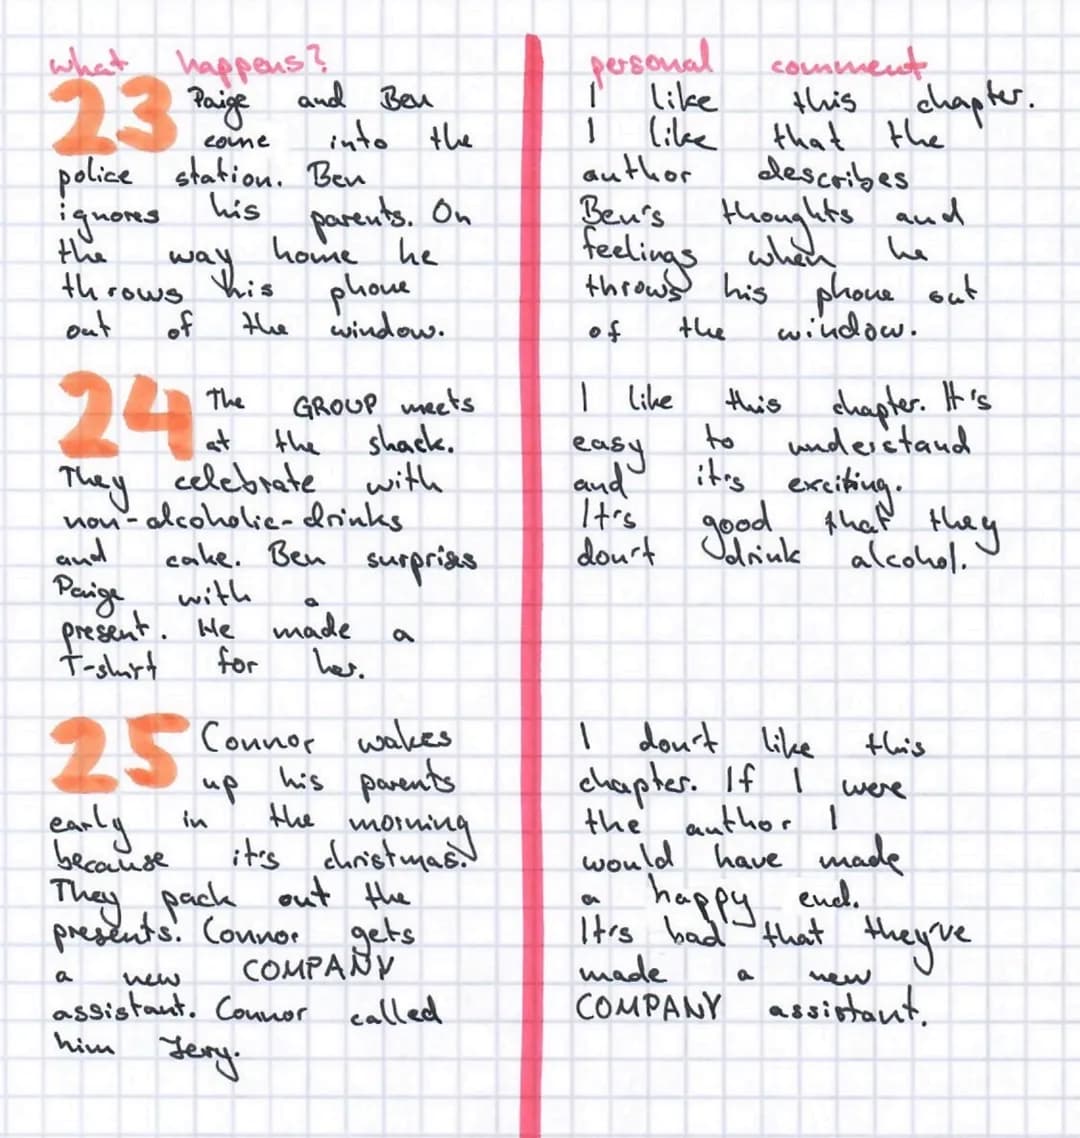 what happens?
23 Paige and Ben
come into the
police station. Ben
ignores his parents. On
the way home he
throws his phone
out of the window.
24 The GROUP meets
at the shack.
They celebrate with
non-alcoholic-drinks
and cake. Ben surprises
Paige with a
present. He made a
T-shirt for her.
25 Connor wakes
up his parents
early in the morning
because it's christmas.
They pack out the
presents. Connor gets
a new COMPANY
assistant. Connor called
him Jery.
personal comment
I like this chapter.
I like that the
author describes
Ben's thoughts and
feelings when he
throws his phone out
of the window.
I like this chapter. It's
easy to understand
and it's exciting.
It's good that they
don't drink alcohol.
I don't like this
chapter. If I were
the author I
would have made
a happy end.
It's bad that they've
made a new
COMPANY assistant.